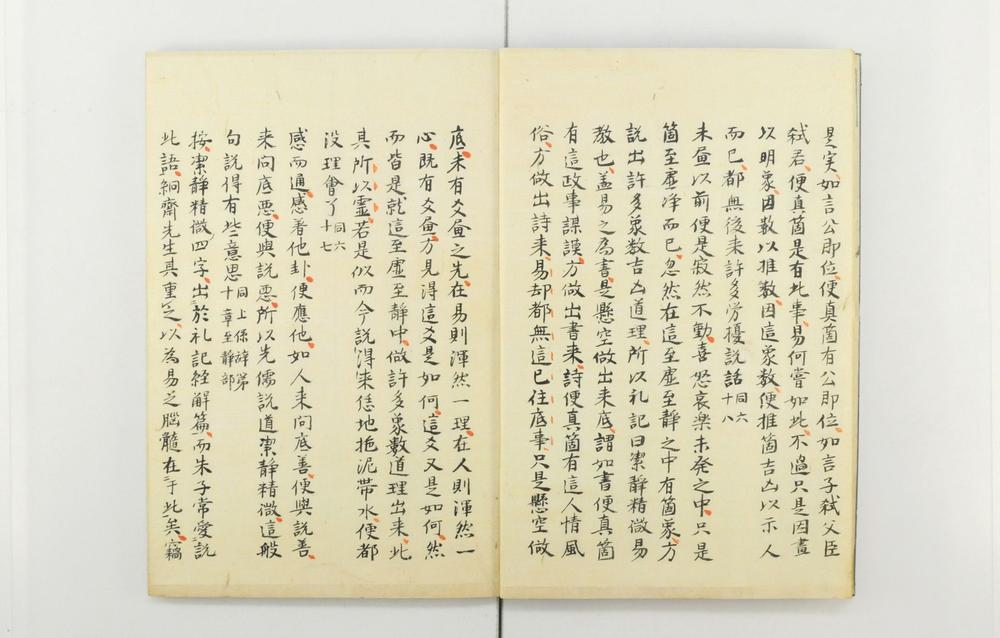 是実如言公即位便真箇有公即位如言子弑父臣
弑君便真箇是有此事易何嘗如此不過只是因畫
以明象因数以推数因這象数便推箇吉凶以示人
而已都無後来許多勞擾説話同六十八
未畫以前便是寂然不動喜怒哀楽未発之中只是
箇至虚浄而已忽然在這至虚至静之中有箇象方
説出許多象数吉凶道理所以礼記曰潔静精微易
教也盖易之為書是懸空做出来底謂如書便真箇
有這政事謀謨方做出書来詩便真箇有這人情風
俗方做出詩来易却都無這已住底事只是懸空做
底未有爻畫之先在易則渾然一理在人則渾然一
心既有爻畫方見得這爻是如何這爻又是如何然
而皆是就這至虚至静中做許多象數道理出来此
其所以靈若是似而今説得来恁地拖泥帯水便都
没理會了同六十七
感而通感着他卦便應他如人来問底善便與説善
来問底悪便與説悪所以先儒説道潔静精微這般
句説得有些意思同上係辞第十章至静部
按潔静精微四字出於礼記経解篇而朱子常愛説
此語絅齋先生其重之以為易之脳髓在于此矣竊